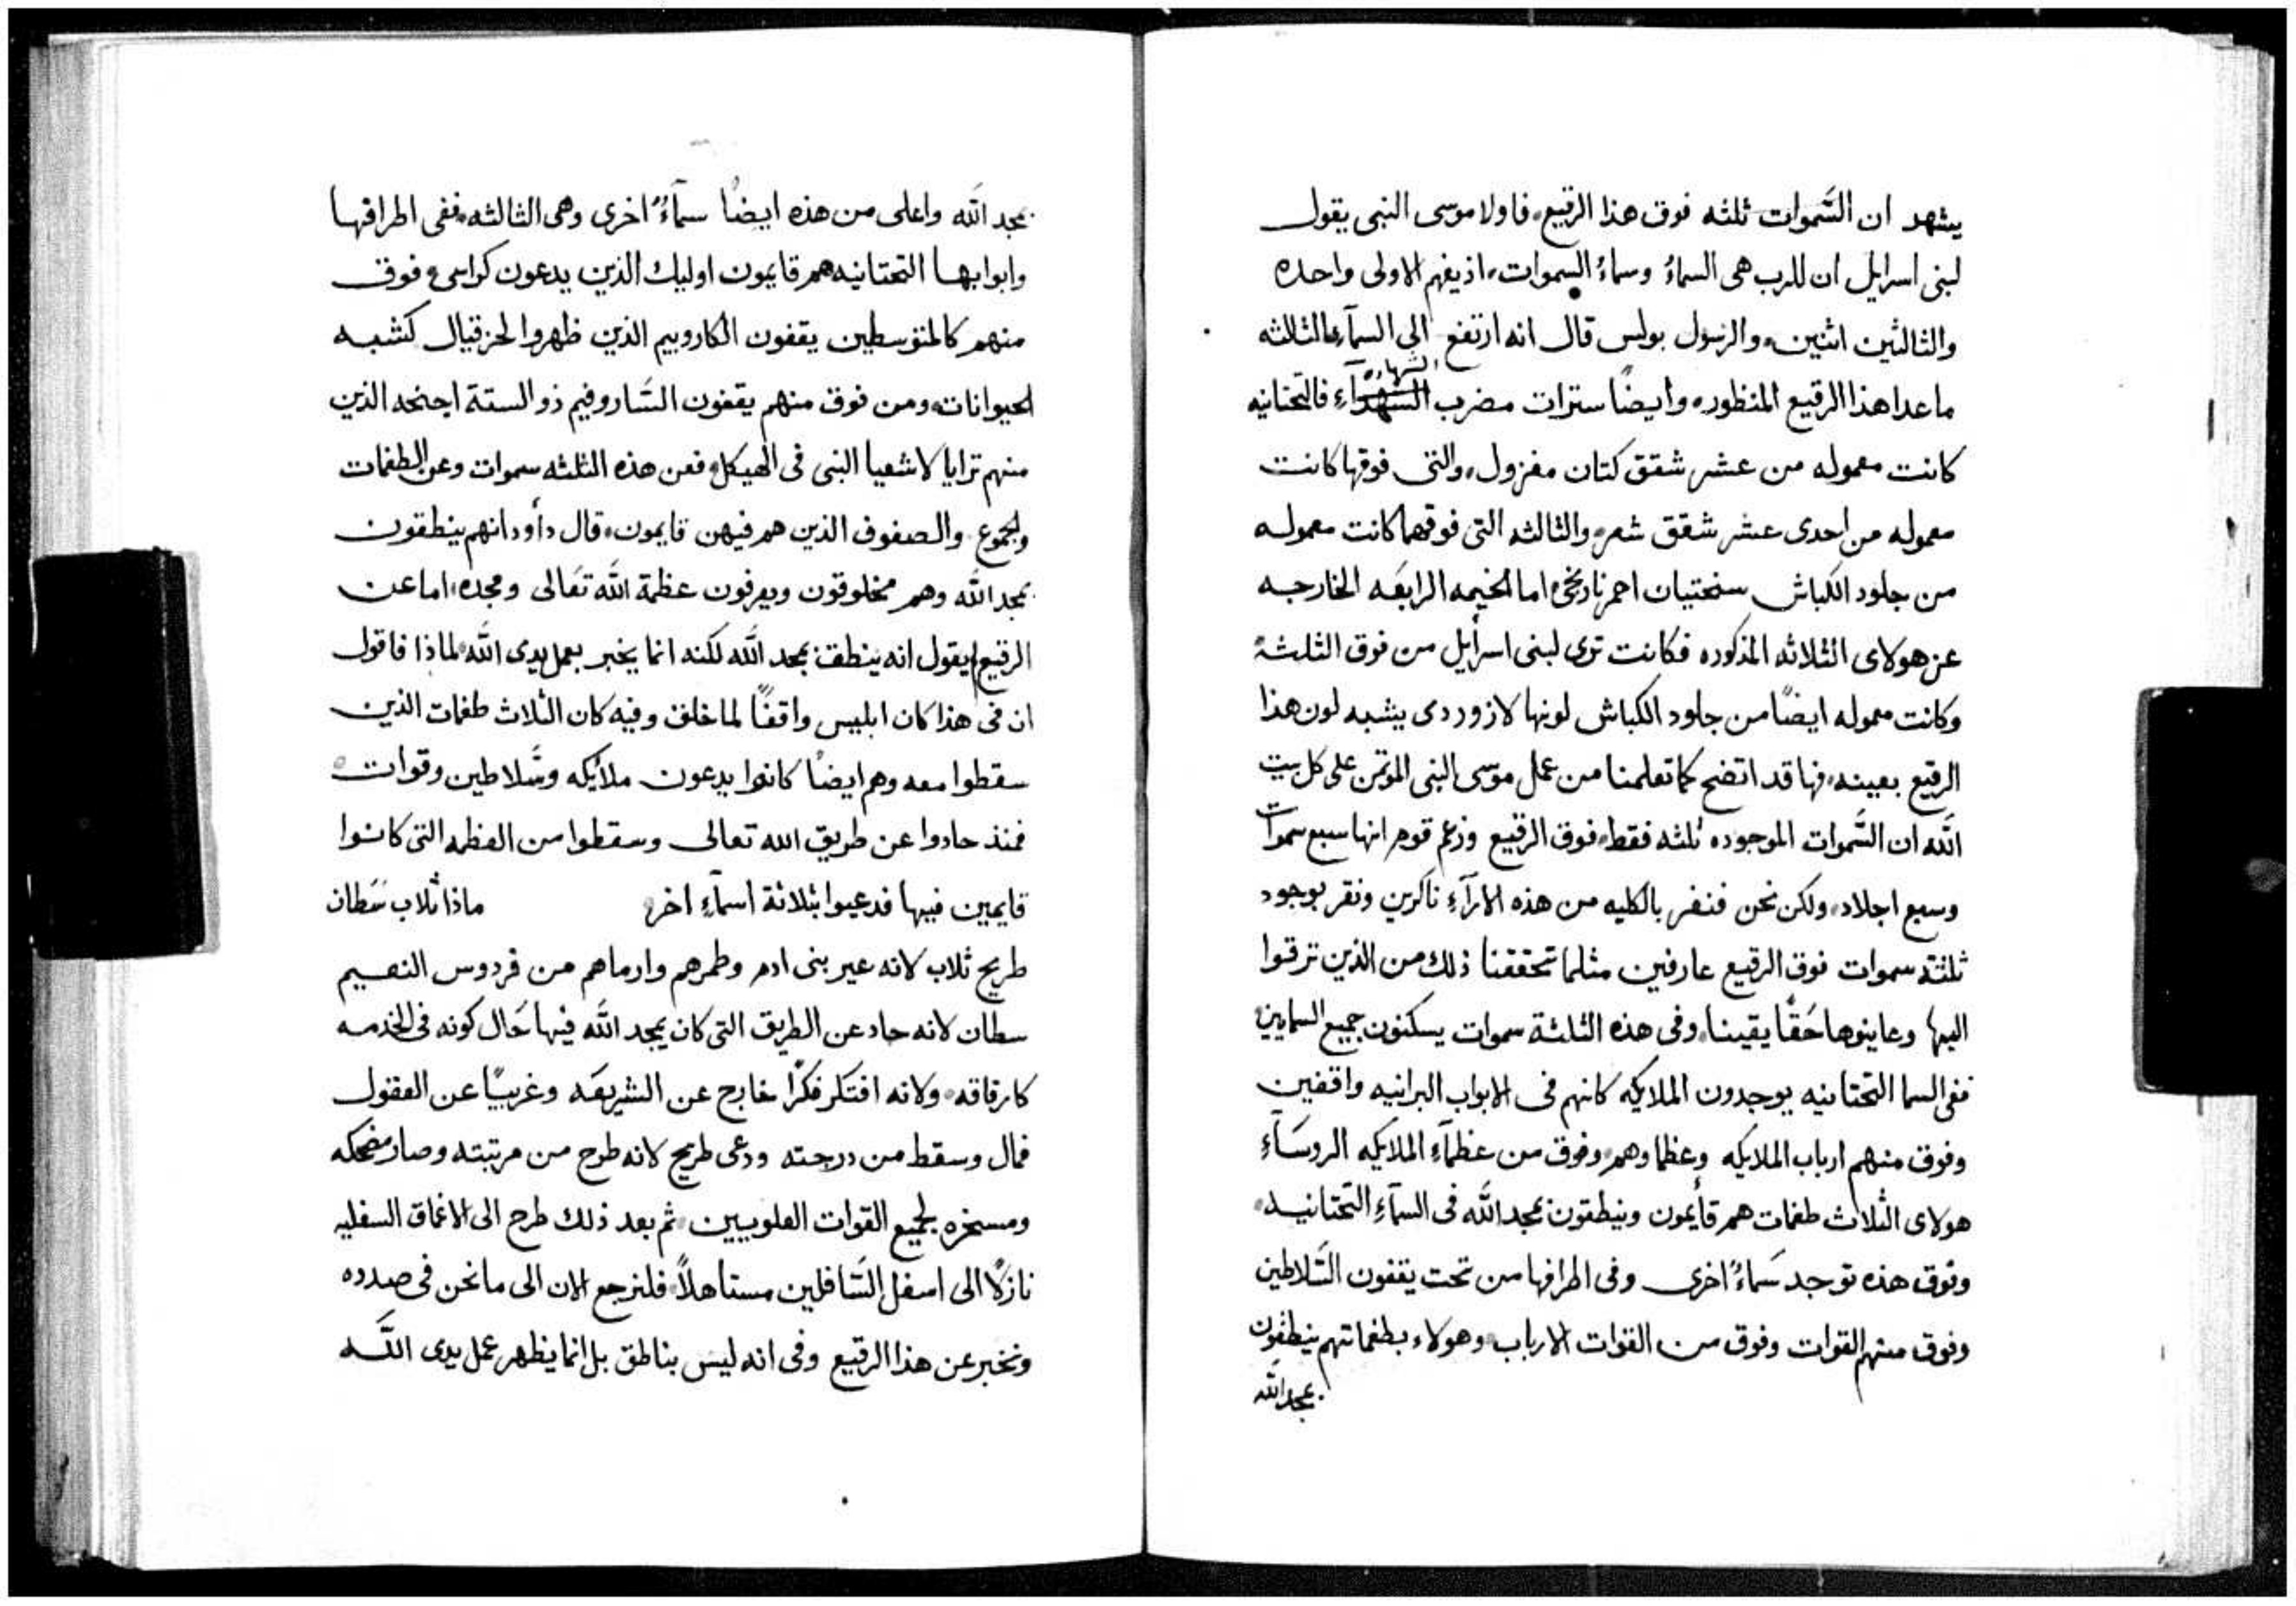 يشهد ان السَّموات ثلثه فوق هذا الرقيع، فاولا موسى النبى يقول
لبنى اسرايل ان للرب هى السماءُ وسماءُ السموات، اذ يفهم الاولى واحده
والثالثين اثنين، والرسول بولس قال انه ارتفع الى السمآءِ الثالثه
الشهاده
ما عدا هذا الرقيع المنظور، وايضًا سترات مضرب الشهدآءِ فالتحتانيه
كانت معموله من عشر شقق كتان مغزول، والتى فوقها كانت
معموله من احدى عشر شقق شعر، والثالثه التى فوقهما كانت معموله
من جلود الكباش سختيان احمر نارنجى، اما الخيمه الرابعَه الخارجه
عن هولاى الثلاثه المذكوره فكانت ترى لبنى اسرأيل من فوق الثلثهْ
وكانت معموله ايضًا من جلود الكباش لونها لازوردى يشبه لون هذا
الرقيع بعينه، فها قد اتضح كما تعلمنا من عمل موسى النبى الموتمن على كل بيت
اللَّه ان السَّموات الموجوده ثلثه فقط، فوق الرقيع وزعم قوم انها سبع سموات
وسبع اجلاد، ولكن نحن فنفر بالكليه من هذه الارآءِ ناكرين ونقر بوجود
ثلثة سموات فوق الرقيع عارفين مثلما تحققنا ذلك من الذين ترقوا
اليها وعاينوها حَقًّا يقينا، وفى هذه الثلثة سموات يسكنون جميع السمايين
ففى السما التحتانيه يوجدون الملايكه كانهم فى الابواب البرانيه واقفين
وفوق منهم ارباب الملايكه وعظماوهم، وفوق من عظمآءِ الملايكه الروسَآءِ
هولاى الثلاث طغمات هم قأيمون وينطقون بمجد اللَّه فى السمآءِ التحتانيه،
وفوق هذه توجد سَماءُ اخرى وفى اطرافها من تحت يقفون السَّلاطين
وفوق منهم القوات وفوق من القوات الارباب، وهولاء بطغماتهم ينطقون
بمجد اللَّه
بمجد اللَّه واعلى من هذه ايضًا سمآءُ اخرى وهى الثالثه، ففى اطرافها
وابوابها التحتانيه هم قايمون اوليك الذين يدعون كراسى، وفوق
منهم كالمتوسطين يقفون الكاروبيم الذين ظهروا لحزقيال كشبه
الحيوانات، ومن فوق منهم يقفون السَّاروفيم ذو الستة اجنحه الذين
منهم ترايا لاشعيا النبى فى الهيكل، فعن هذه الثلثه سموات وعن الطغمات
والجموع والصفوف الذين هم فيهن قايمون، قال دأود انهم ينطقون
بمجد اللَّه وهم مخلوقون ويعرفون عظمة اللَّه تعَالى ومجده، اما عن
الرقيع لم يقول انه ينطق بمجد اللَّه لكنه انما يخبر بعمل يدى اللَّه، لماذا فاقول
ان فى هذا كان ابليس واقفًا لما خلق وفيه كان الثلاث طغمات الذين
سقطوا معه وهم ايضًا كانوا يدعون ملأيكه وسَّلاطين وقوات،
فمنذ حادوا عن طريق الله تعالى وسقطوا من العظمه التى كانوا
قايمين فيها فدعيوا بثلاثة أسمآءِ اخر، ماذا ثلاب سَطان
طريح ثلاب لانه عير بنى ادم وطمرهم وارماهم من فردوس النعيم
سطان لانه حاد عن الطريق التى كان يمجد اللَّه فيها حَال كونه فى الخدمه
كارفاقه، ولانه افتكر فكرًا خارج عن الشريعَه وغريبًا عن العقول
فمال وسقط من درجته ودعى طريح لانه طرح من مرتبته وصار مضحكه
ومسخره لجميع القوات العلويين، ثم بعد ذلك طرح الى الاعماق السفليه
نازلًا الى اسفل السَّافلين مستاهلاً، فلنرجع الان الى ما نحن فى صدده
ونخبر عن هذا الرقيع وفى انه ليس بناطق بل انما يظهر عمل يدى اللَّه